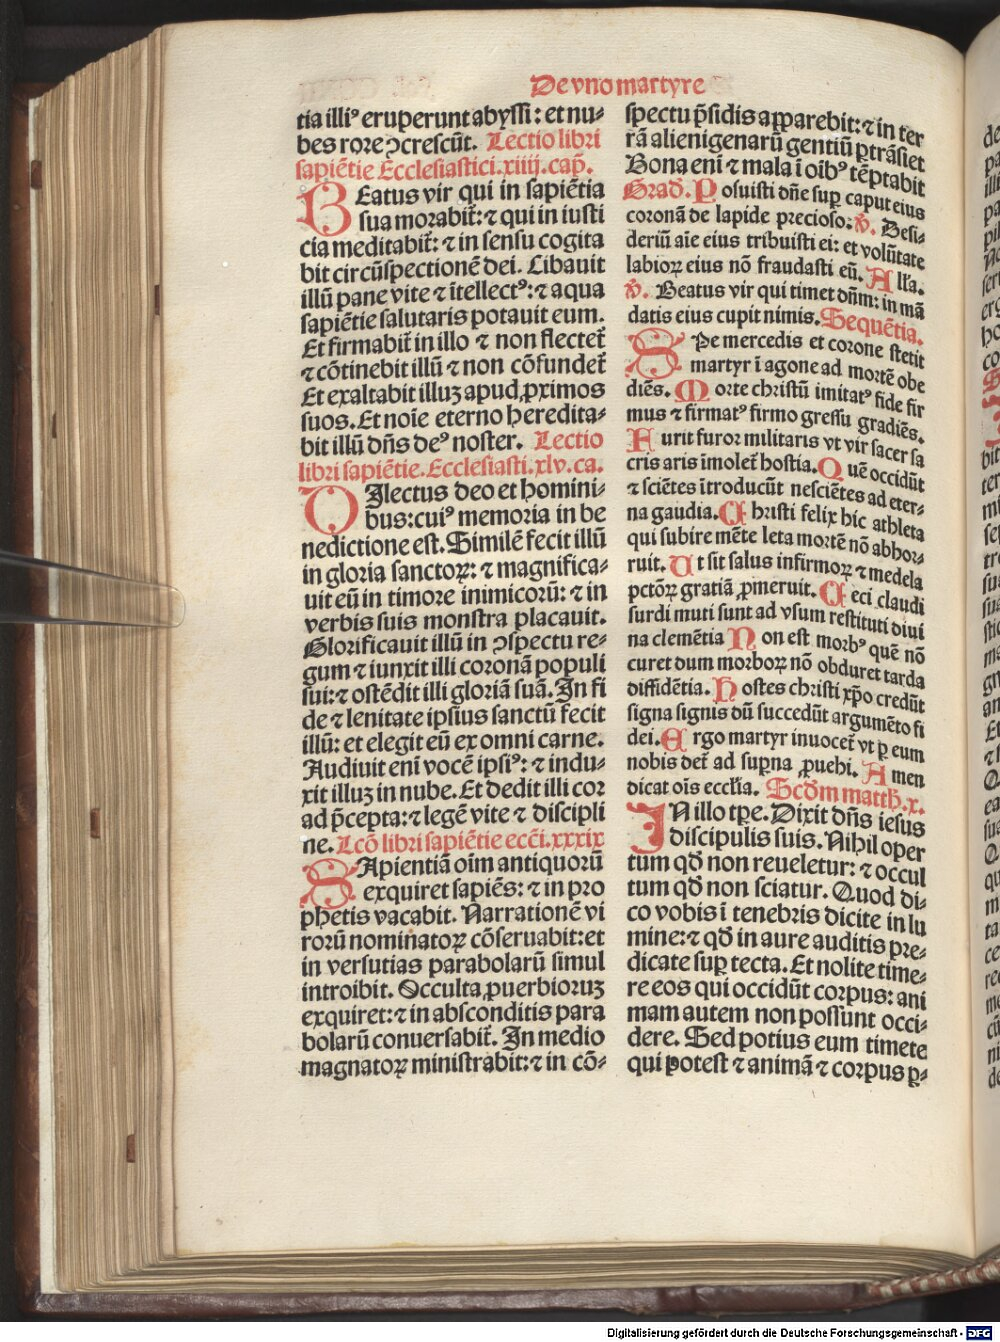 De vno martyre
tia illiꝰ eruperunt abyssi: et nu⸗
bes rore ↄcrescūt. Lectio libri
sapiētie Ecclesiastici. xiiij. cap̄.
BEatus vir qui in sapiētia
sua morabit̄: ⁊ qui in iusti
cia meditabit̄: ⁊ in sensu cogita
bit circūspectionē dei. Cibauit
illū pane vite ⁊ ītellectꝰ: ⁊ aqua
sapiētie salutaris potauit eum.
Et firmabit̄ in illo ⁊ non flectet̄
⁊ cōtinebit illū ⁊ non cōfundet̄
Et exaltabit illuꝫ apud ꝓximos
suos. Et noīe eterno heredita⸗
bit illū dn̄s deꝰ noster. Lectio
libri sapiētie. Ecclesiasti. xlv. ca.
DIlectus deo et homini⸗
bus: cuiꝰ memoria in be
nedictione est. Similē fecit illū
in gloria sanctoꝝ: ⁊ magnifica⸗
uit eū in timore inimicorū: ⁊ in
verbis suis monstra placauit.
Glorificauit illū in ↄspectu re⸗
gum ⁊ iunxit illi coronā populi
sui: ⁊ ostēdit illi gloriā suā. In fi
de ⁊ lenitate ipsius sanctū fecit
illū: et elegit eū ex omni carne.
Audiuit enī vocē ipsiꝰ: ⁊ indu⸗
xit illuꝫ in nube. Et dedit illi cor
ad p̄cepta: ⁊ legē vite ⁊ discipli
ne. Lcō libri sapiētie ecc̄i. xxxix
SApientiā oīm antiquorū
exquiret sapiēs: ⁊ in pro
phetis vacabit. Narrationē vi
rorū nominatoꝝ cōseruabit: et
in versutias parabolarū simul
introibit. Occulta ꝓuerbioruꝫ
exquiret: ⁊ in absconditis para
bolarū conuersabit̄. In medio
magnatoꝝ ministrabit: ⁊ in cō⸗
spectu p̄sidis apparebit: ⁊ in ter
rā alienigenarū gentiū ꝑtrāsiet
Bona enī ⁊ mala ī oībꝰ tēptabit
Grad̄. Posuisti dn̄e suꝑ caput eius
coronā de lapide precioso. ℣. Desi⸗
deriū aīe eius tribuisti ei: et volūtate
labioꝝ eius nō fraudasti eū. All̄a.
℣. Beatus vir qui timet dn̄m: in mā
datis eius cupit nimis. Sequētia.
SPe mercedis et corone stetit
martyr ī agone ad mortē obe
diēs. Morte christū imitatꝰ fide fir
mus ⁊ firmatꝰ firmo gressu gradiēs.
Furit furor militaris vt vir sacer sa
cris aris īmolet̄ hostia. Quē occidūt
⁊ sciētes ītroducūt nesciētes ad eter⸗
na gaudia. Christi felix hic athleta
qui subire mēte leta mortē nō abhor⸗
ruit. Ut sit salus infirmoꝝ ⁊ medela
pctōꝝ gratiā ꝓmeruit. Ceci claudi
surdi muti sunt ad vsum restituti diui
na clemētia Non est morbꝰ quē nō
curet dum morboꝝ nō obduret tarda
diffidētia. Hostes christi xp̄o credūt
signa signis dū succedūt argumēto fi
dei. Ergo martyr inuocet̄ vt ꝑ eum
nobis det̄ ad suꝑna ꝓuehi. Amen
dicat oīs eccl̄ia. Scd̄m matth. x.
IN illo tꝑe. Dixit dn̄s iesus
discipulis suis. Nihil oper
tum qd̄ non reueletur: ⁊ occul
tum qd̄ non sciatur. Quod di⸗
co vobis ī tenebris dicite in lu
mine: ⁊ qd̄ in aure auditis pre⸗
dicate suꝑ tecta. Et nolite time⸗
re eos qui occidūt corpus: ani
mam autem non possunt occi⸗
dere. Sed potius eum timete
qui potest ⁊ animā ⁊ corpus ꝑ⸗
Digitalisierung gefördert durch die Deutsche Forschungsgemeinschaft - DFG